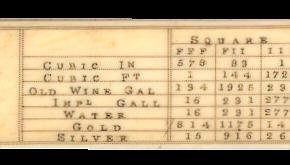 SQUARE
FFF FII II
CUBIC IN 578 83 1
CUBIC FT 1 144 172
OLD WINE GAL 134 1925 23
IMPL GALL 16 231 277
WATER 16 231 277
GOLD 814 1175 14
SILVER 15 916 26